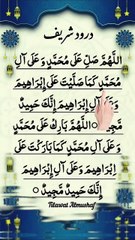 درود شریف
اَللّٰهُمَّ صَلِّ عَلٰى مُحَمَّدٍ وَّعَلٰٓى اٰلِ
مُحَمَّدٍ كَمَا صَلَّيْتَ عَلٰٓى اِبْرَاهِيْمَ
اٰلِ اِبْرَاهِيْمَ اِنَّكَ حَمِيْدٌ
مَّجِيْدٌ اَللّٰهُمَّ بَارِكْ عَلٰى
مُحَمَّدٍ وَّعَلٰٓى اٰلِ مُحَمَّدٍ كَمَا بَارَكْتَ عَلٰٓى
اِبْرَاهِيْمَ وَعَلٰٓى اٰلِ اِبْرَاهِيْمَ
اِنَّكَ حَمِيْدٌ مَّجِيْدٌ
Tilawat Almushaf